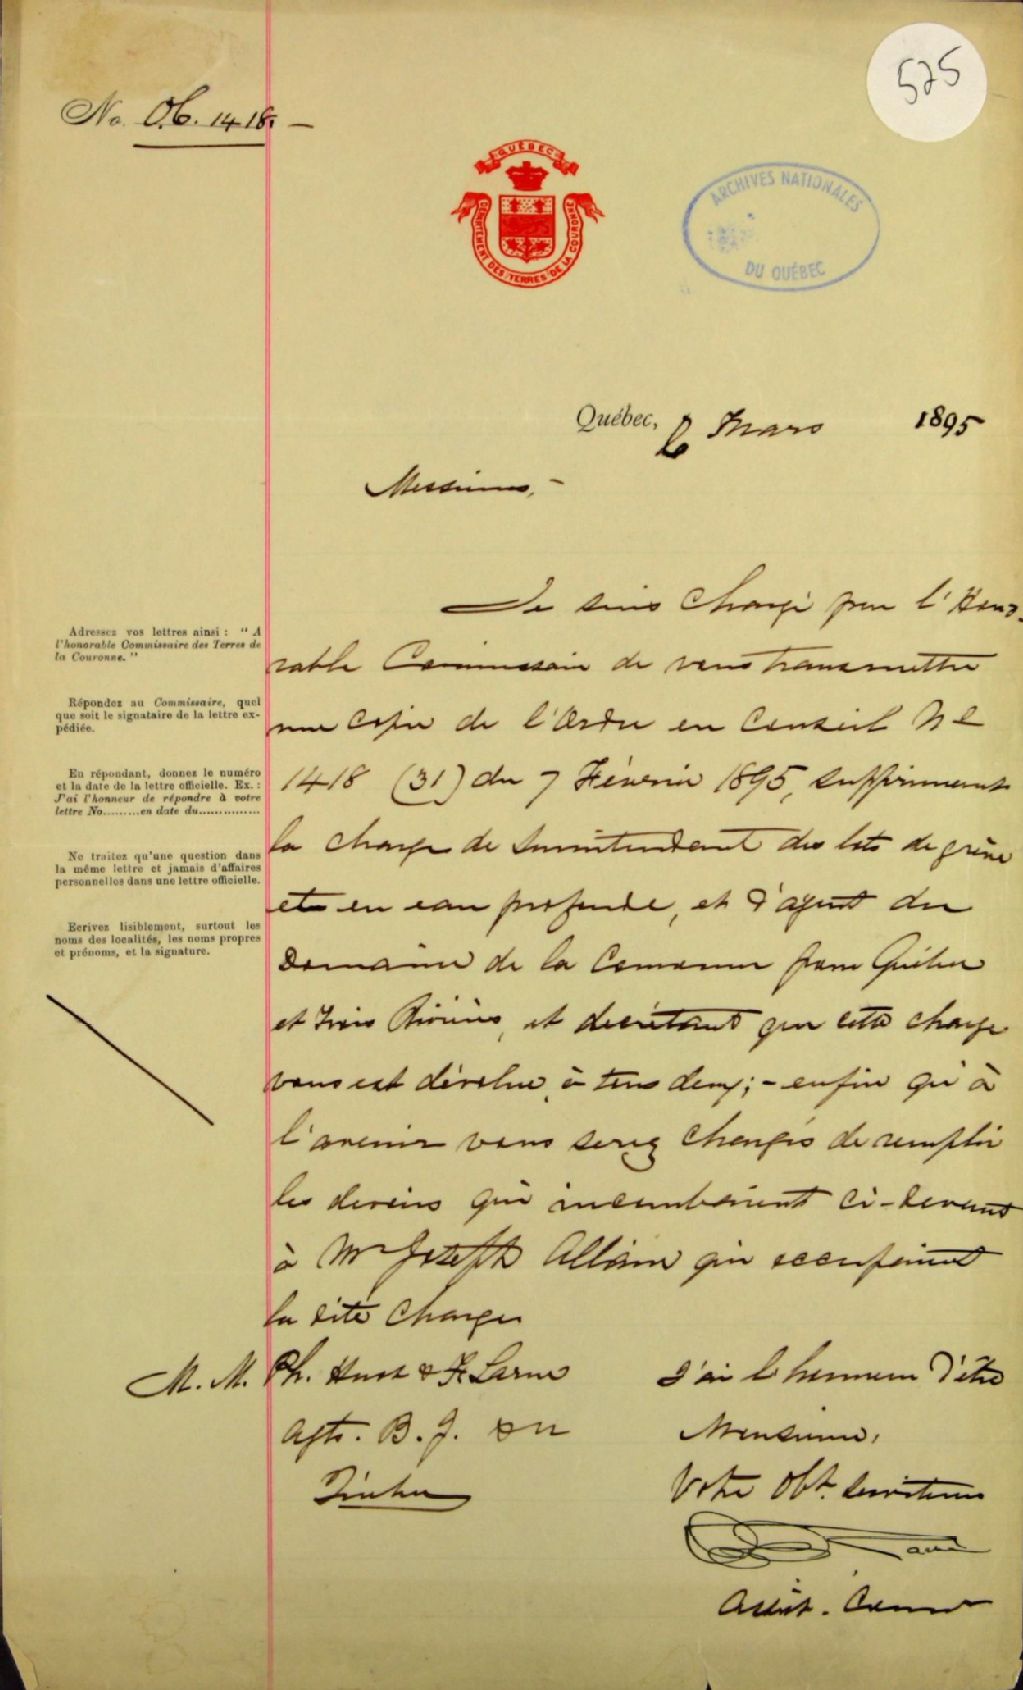 525
No. O.C. 1418. —
QUÉBEC
DÉPARTEMENT DES TERRES DE LA COURONNE
ARCHIVES NATIONALES
DU QUÉBEC
Québec, 6 Mars 1895
Messieurs, -
Je suis chargé par l'Hono-
rable Commissaire de vous transmettre
une copie de l'Ordre en Conseil No
1418 (31) du 7 Février 1895, supprimant
la charge de surintendant des lots de grève
et en eau profonde, et d'agent du
Domaine de la Couronne pour Québec
et Trois Rivières, et decrétant que cette charge
vous est dévolue à tous deux; - enfin qu'à
l'avenir vous serez chargés de remplir
les devoirs qui incombaient ci-devant
à Mr Joseph Allaire qui occupait
la dite charge
Adressez vos lettres ainsi : " A
l'honorable Commissaire des Terres de
la Couronne. "
Répondez au Commissaire, quel
que soit le signataire de la lettre ex-
pédiée.
En répondant, donnez le numéro
et la date de la lettre officielle. Ex. :
J'ai l'honneur de répondre à votre
lettre No.........en date du..............
Ne traitez qu'une question dans
la même lettre et jamais d'affaires
personnelles dans une lettre officielle.
Ecrivez lisiblement, surtout les
noms des localités, les noms propres
et prénoms, et la signature.
M. M. Ph. Huot & F. Larue
Agts. B. J.
Québec
J'ai l'honneur d'être
Messieurs,
Votre Obt. serviteur
Taché
Assist. Comr